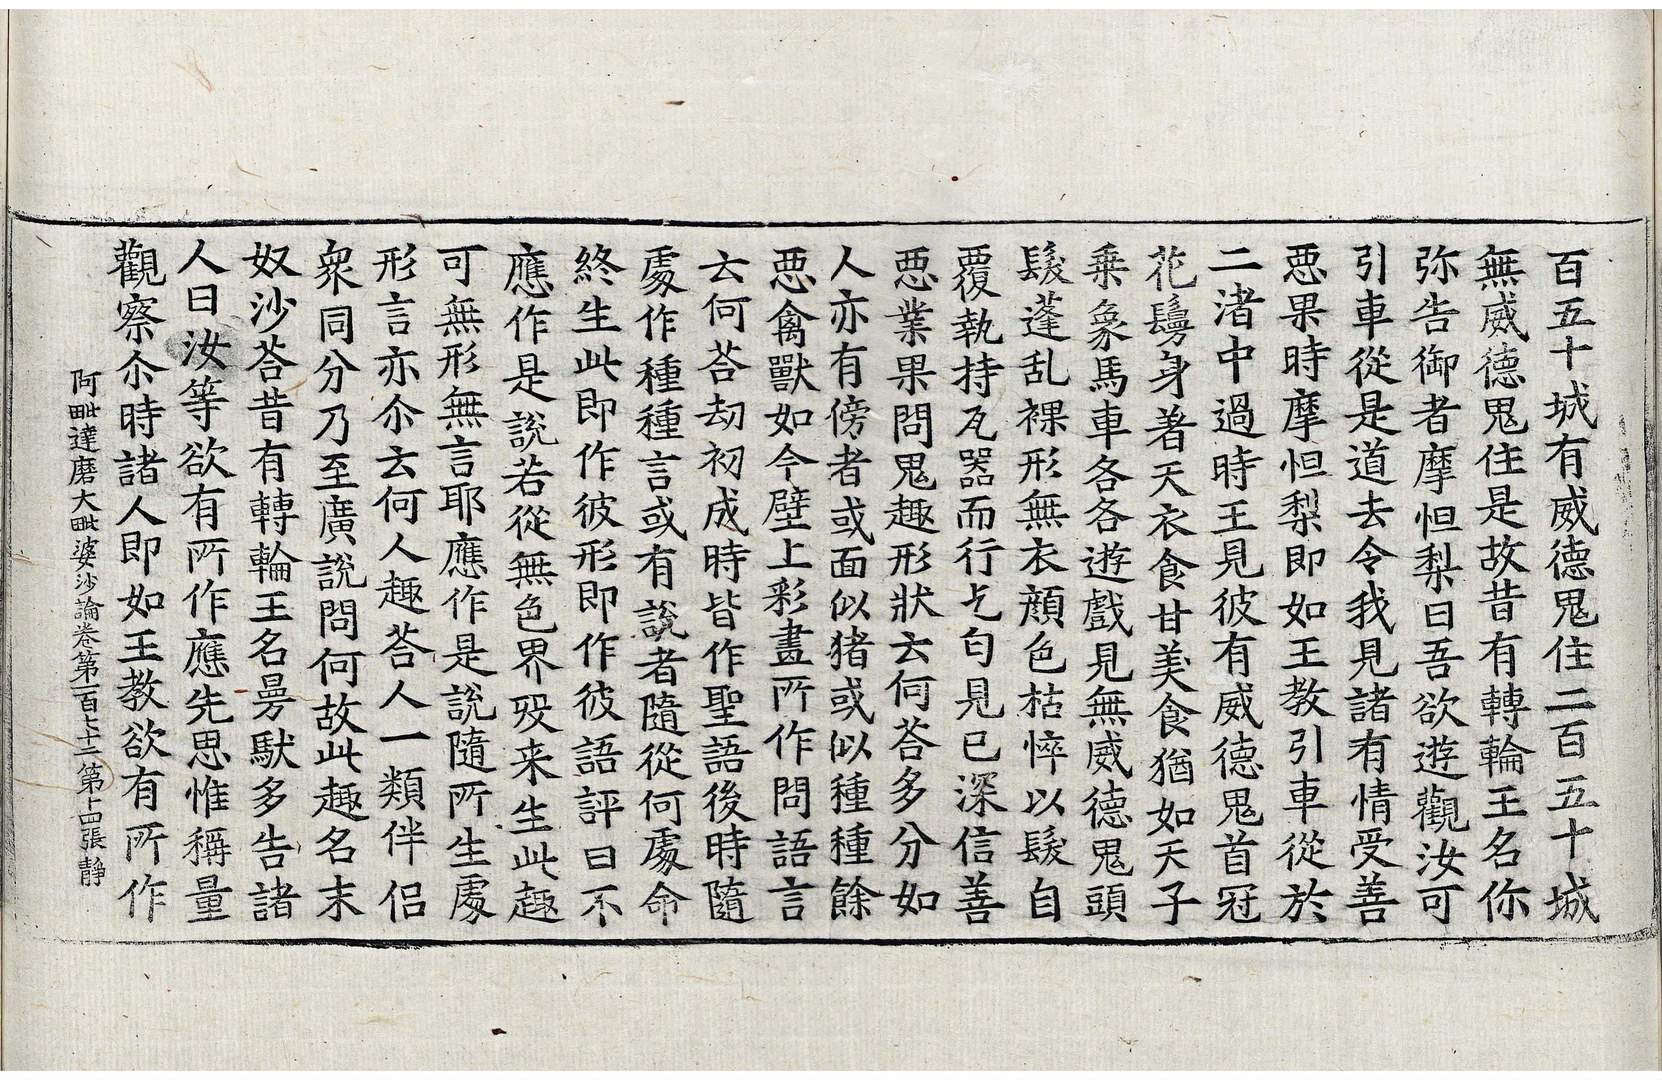 百五十城有威德鬼住二百五十城
無威德鬼住是故昔有轉輪王名你
弥告御者摩怛梨曰吾欲遊觀汝可
引車從是道去令我見諸有情受善
惡果時摩怛梨即如王教引車從於
二渚中過時王見彼有威德鬼首冠
花鬘身著天衣食甘美食猶如天子
乗象馬車各各遊戲見無威德鬼頭
髮蓬乱裸形無衣顔色枯悴以髮自
覆執持瓦器而行乞匃見已深信善
惡業果問鬼趣形狀云何荅多分如
人亦有傍者或面似猪或似種種餘
惡禽獸如今壁上彩畫所作問語言
云何荅劫初成時皆作聖語後時隨
處作種種言或有說者隨從何處命
終生此即作彼形即作彼語評曰不
應作是說若從無色界歿来生此趣
可無形無言耶應作是說隨所生處
形言亦尒云何人趣荅人一類伴侣
衆同分乃至廣說問何故此趣名末
奴沙荅昔有轉輪王名曼馱多告諸
人曰汝等欲有所作應先思惟稱量
觀察尒時諸人即如王教欲有所作
阿毗達磨大毗婆沙論卷第一百七十二 第十四張 靜